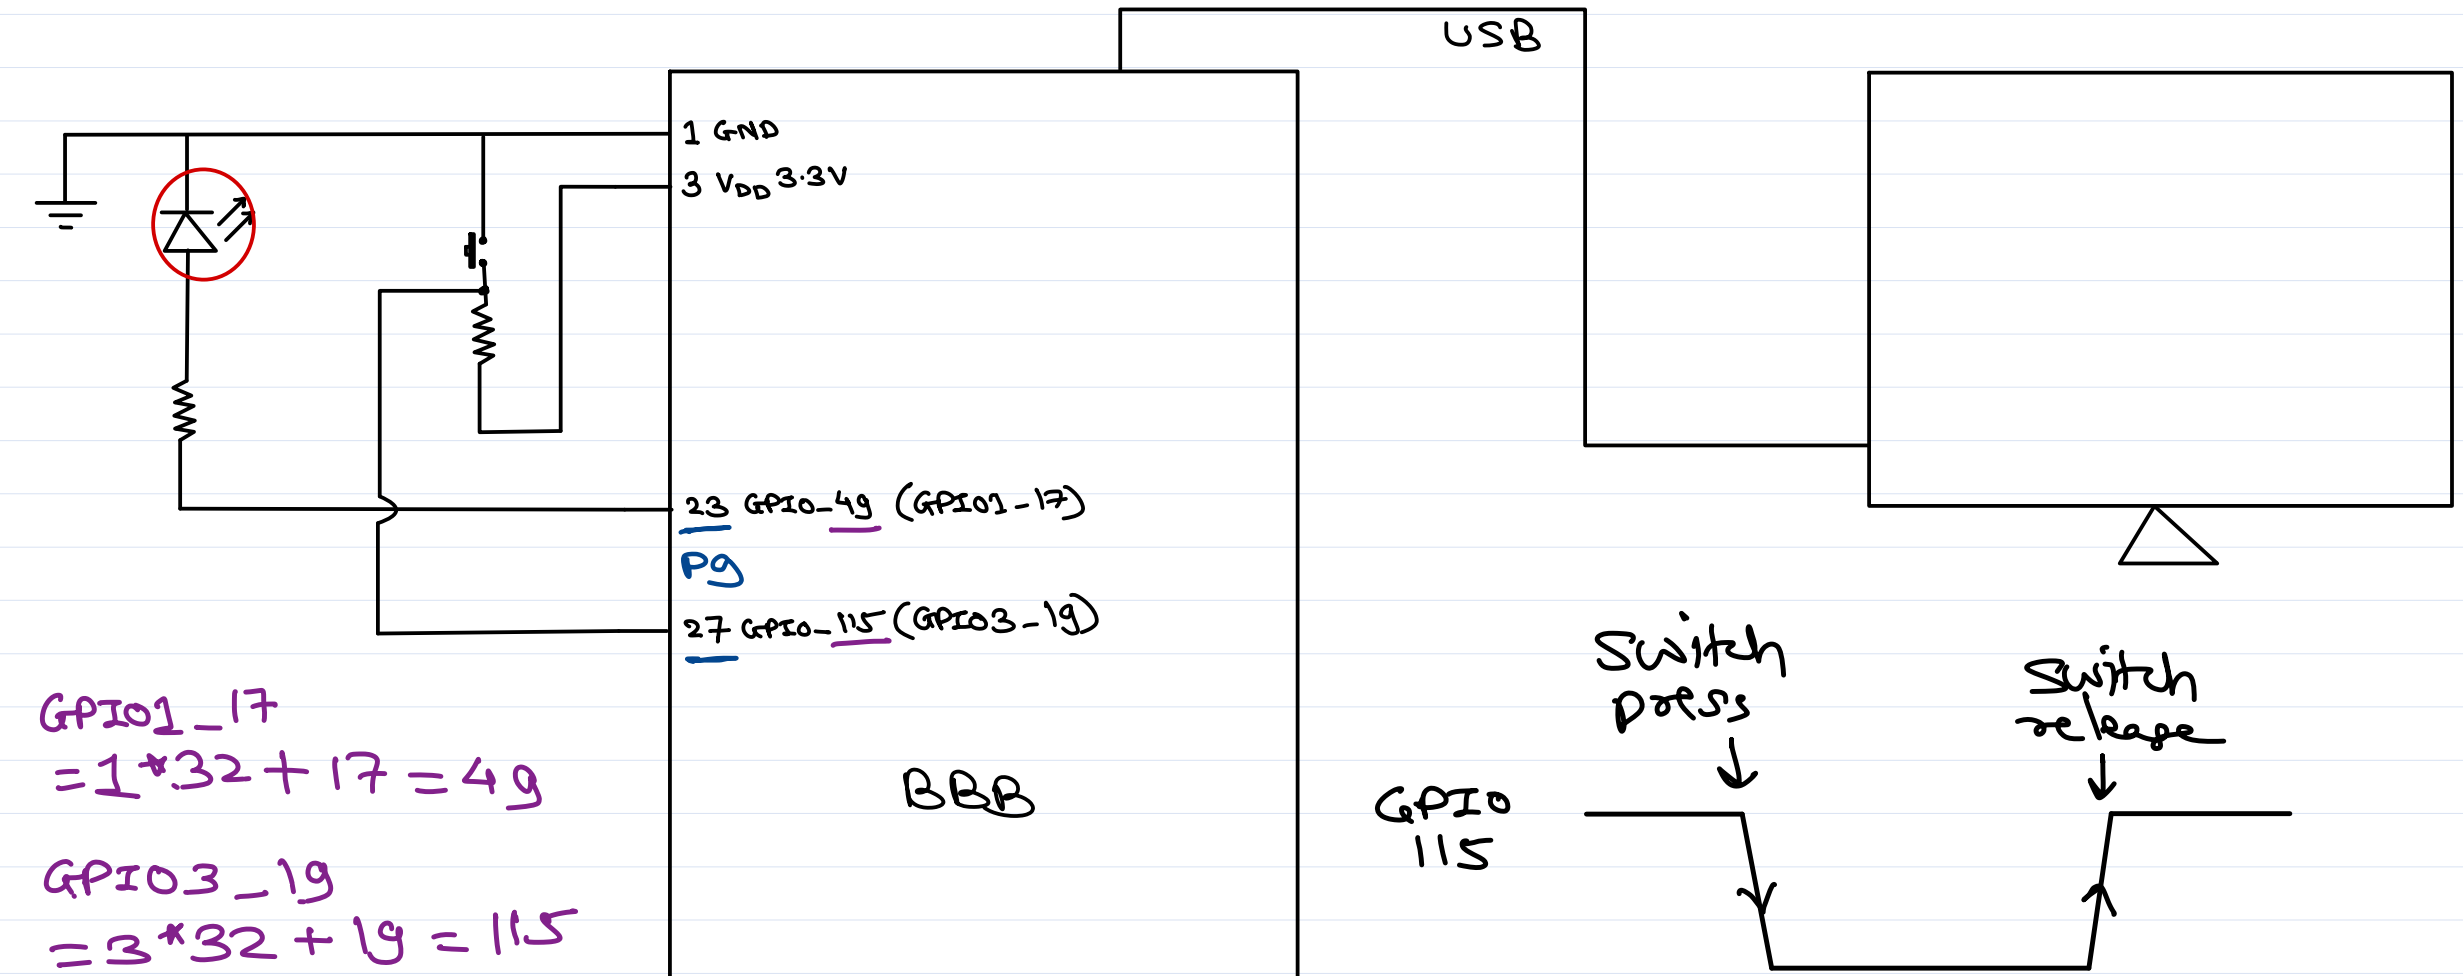 USB
1 GND
3 VDD 3.3V
23 GPIO_49 (GPIO1-17)
P9
27 GPIO_115 (GPIO3-19)
GPIO1_17
=1*32+17=49
GPIO3_19
=3*32+19=115
BBB
Switch
press
Switch
release
GPIO
115